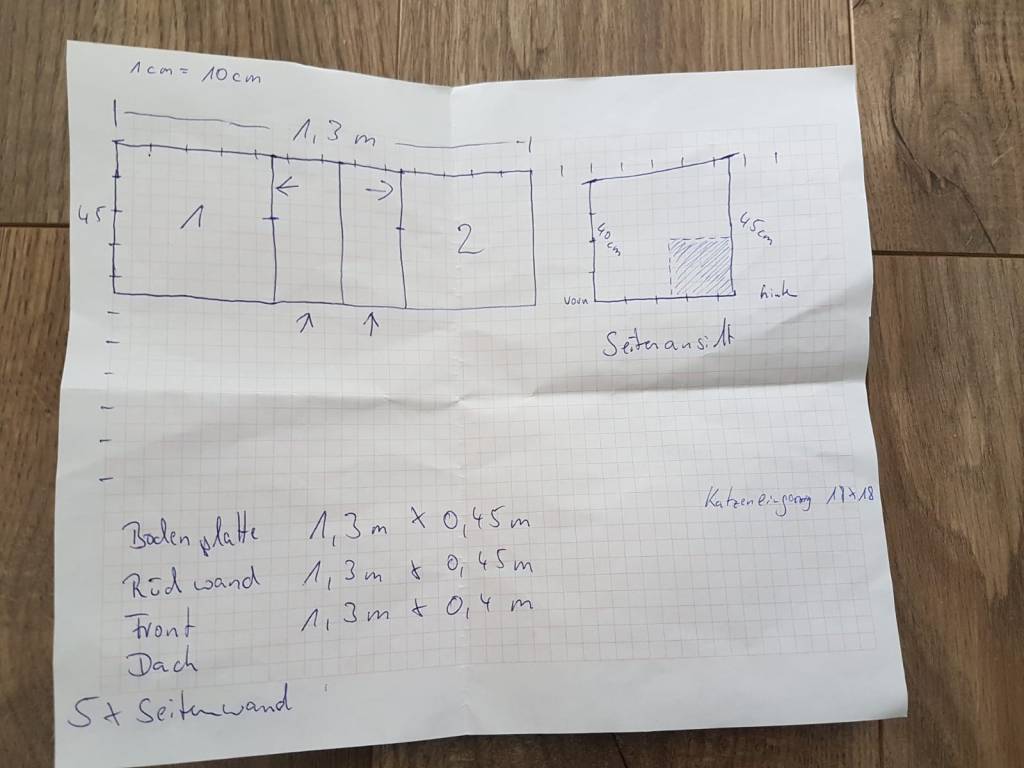 1cm = 10cm
1,3 m
45
1
2
40 cm
45cm
vorn
Seitenansicht
Katzeneingang 17x18
Bodenplatte 1,3 m x 0,45 m
Rückwand 1,3 m x 0,45 m
Front 1,3 m x 0,4 m
Dach
5x Seitenwand